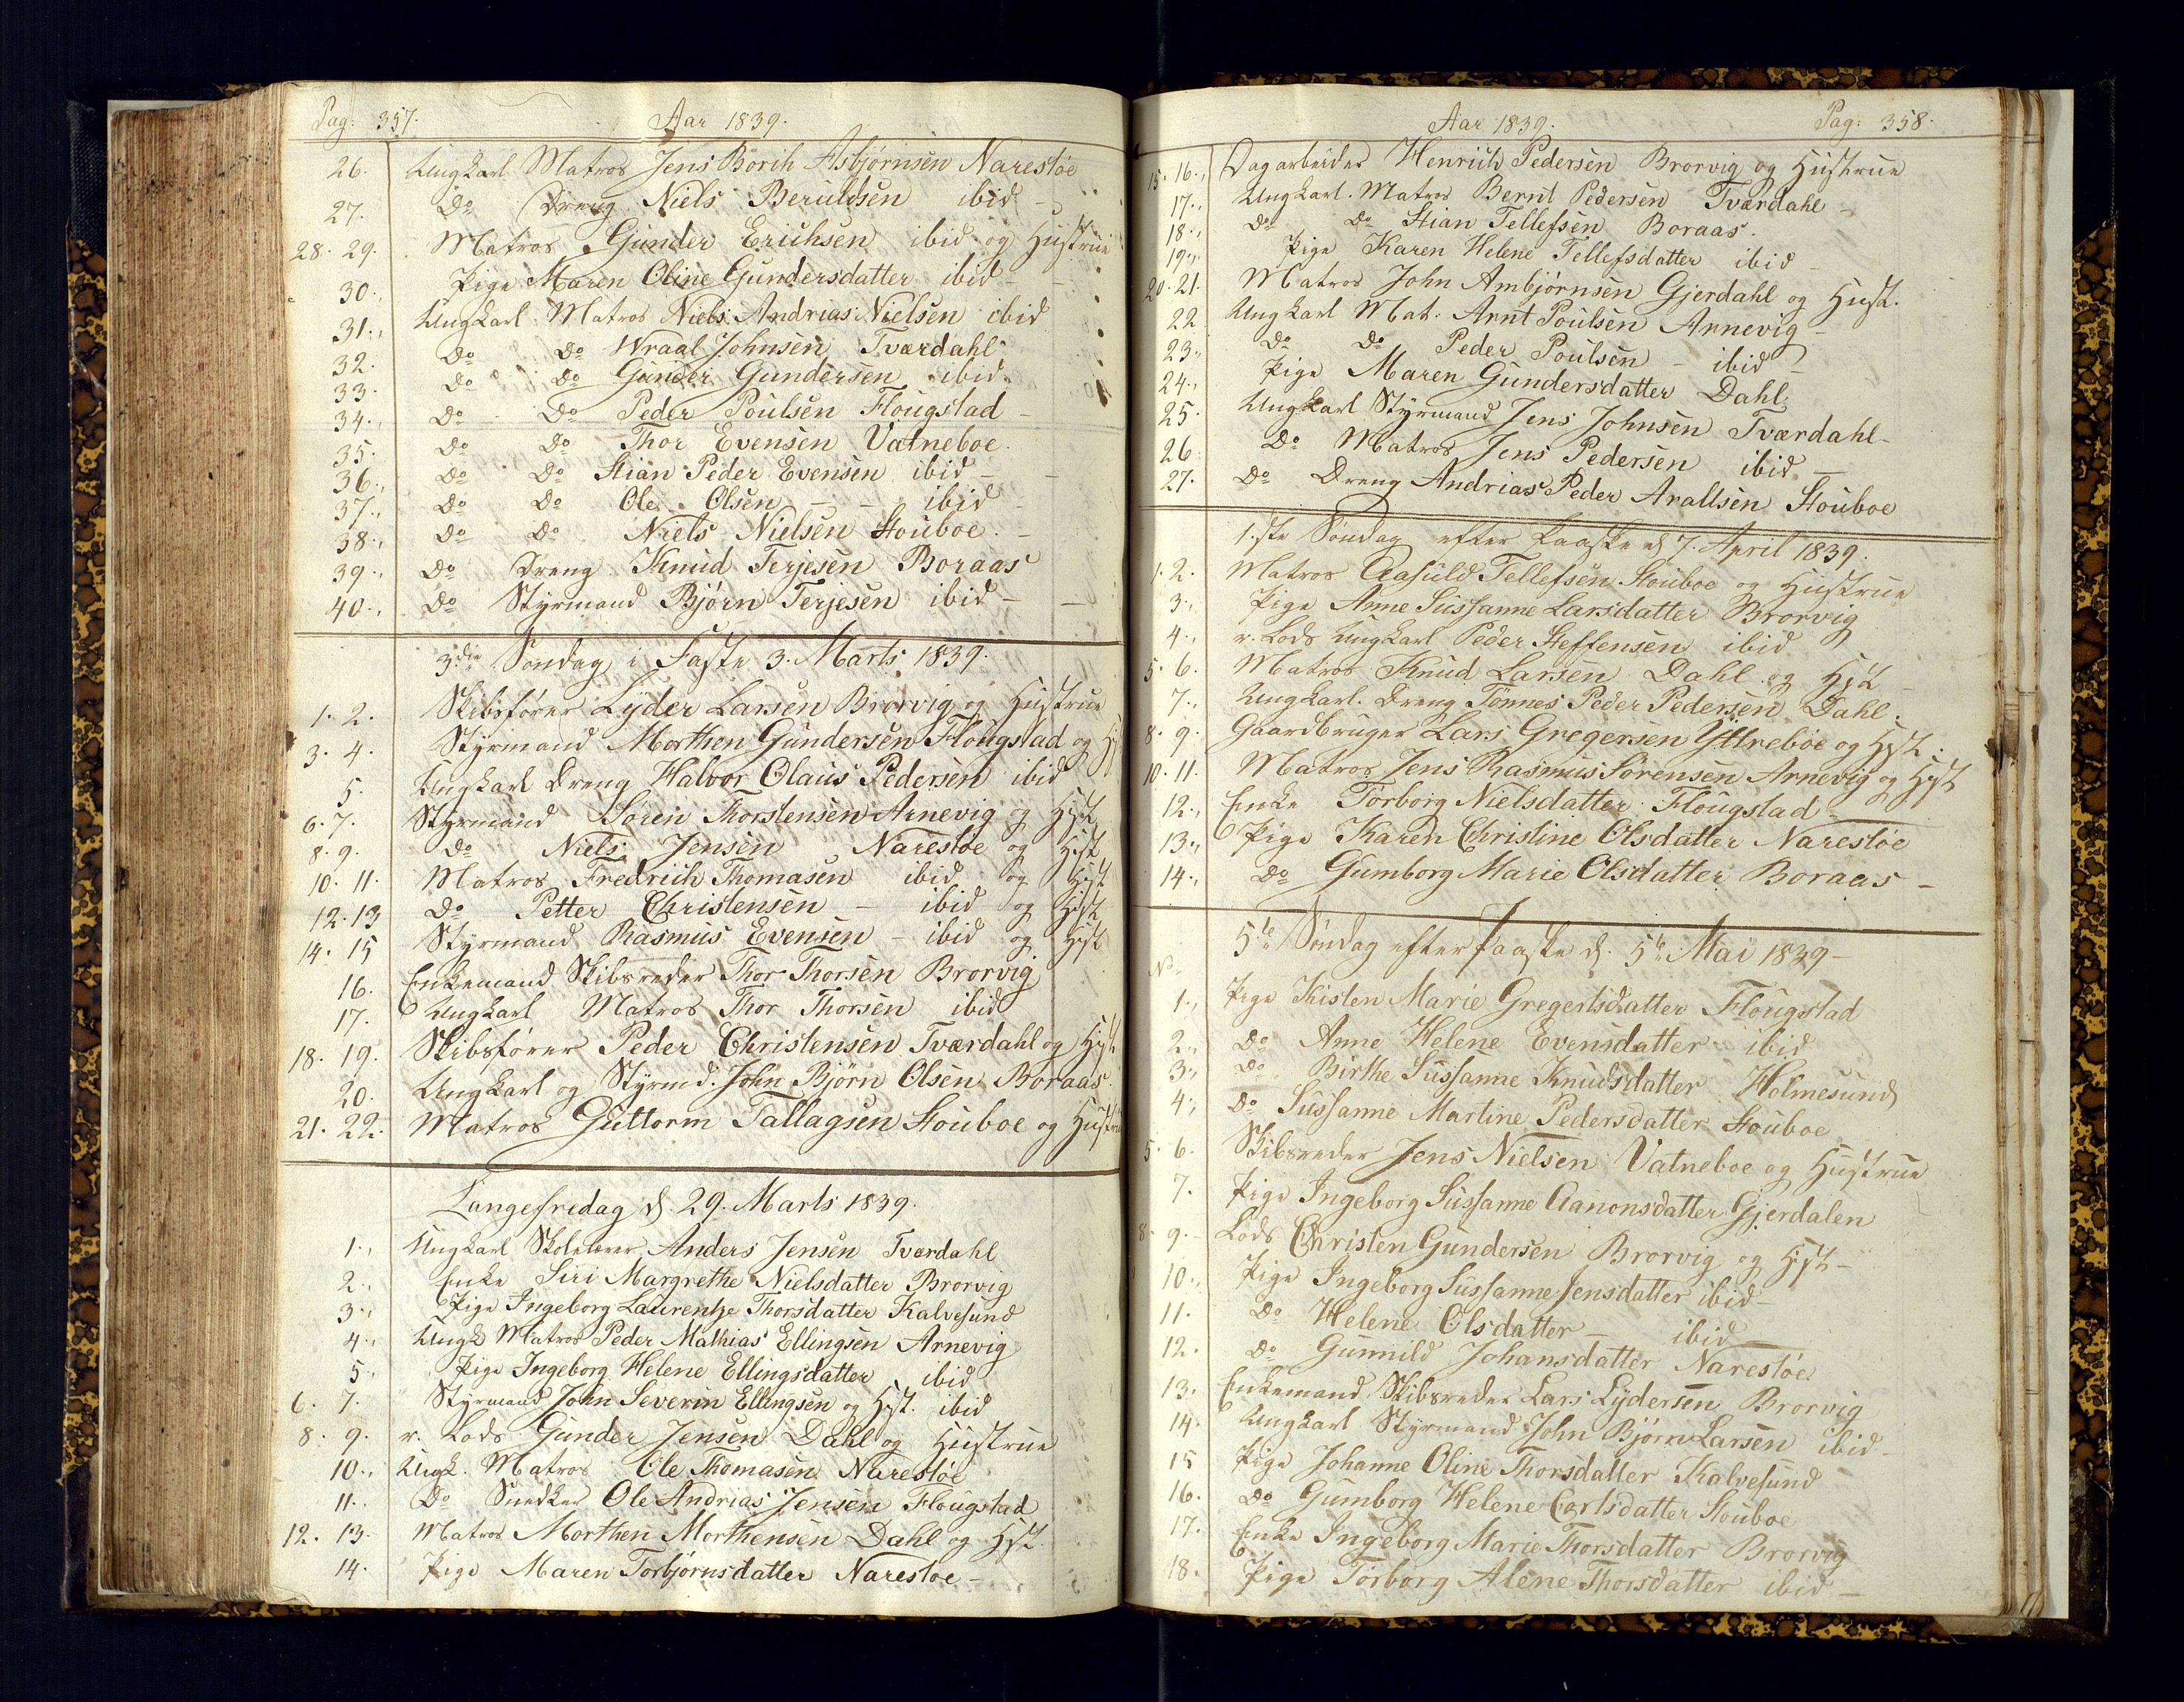 Pag: 357. Aar 1839.
26. Ungkarl Matros Jens Borih Asbjørnsen Narestøe
27. Do Dreng Niels Beruldsen ibid –
28. 29. Matros Gunder Erichsen ibid og Hustrue
30., Pige Maren Oline Gundersdatter ibid –
31., Ungkarl Matros Niels Andrias Nielsen ibid
32. Do Do Wraal Johnsen Tværdahl
33. Do Do Gunder Gundersen ibid.
34., Do Do Peder Poulsen Flougstad –
35. Do Do Thor Evensen Vatneboe.
36., Do Do Stian Peder Evensen ibid –
37., Do Do Ole Olsen – ibid
38., Do Do Niels Nielsen Stouboe. –
39., Do Dreng Knud Terjesen Boraas
40., Do Styrmand Bjørn Terjesen ibid –
3die Søndag i Faste 3. Marts 1839.
1. 2. Skibsfører Lyder Larsen Brorvig og Hustrue
3. 4. Styrmand Morthen Gundersen Flougstad og H
5. Ungkarl Dreng Halvor Olaus Pedersen ibid
6. 7. Styrmand Søren Thorstensen Arnevig og Hst
8. 9. Do Niels Jensen Narestøe og Hst
10. 11. Matros Fredrich Thomasen ibid og Hst
12. 13 Do Petter Christensen – ibid og Hst
14. 15 Styrmand Rasmus Evensen – ibid og Hst
16. Enkemand Skibsreder Thor Thorsen Brorvig
17. Ungkarl Matros Thor Thorsen ibid
18. 19. Skibsfører Peder Christensen Tværdahl og Hst
20. Ungkarl og Styrmd. John Bjørn Olsen Boraas.
21. 22. Matros Guttorm Tallagsen Stouboe og Hustrue
Langefredag d 29. Marts 1839.
1., Ungkarl Skolelærer Anders Jensen Tværdahl
2., Enke Siri Margrethe Nielsdatter Brorvig
3., Pige Ingeborg Laurentze Thorsdatter Kalvesund
4., Ungk Matros Peder Mathias Ellingsen Arnevig
5., Pige Ingeborg Helene Ellingsdatter ibid
6. 7. Styrmand John Severin Ellingsen og Hst. ibid
8. 9. r. Lods Gunder Jensen Dahl og Hustrue
10., Ungk. Matros Ole Thomasen Narestøe
11., Do Snedker Ole Andrias Jensen Flougstad
12. 13. Matros Morthen Morthensen Dahl og Hst.
14. Pige Maren Torbjørnsdatter Narestøe –
Aar 1839. Pag: 358.
15. 16., Dagarbeider Henrich Pedersen Brorvig og Hustrue
17., Ungkarl. Matros Bernt Pedersen Tværdahl –
18., Do Do Stian Tellefsen Boraas.
19., Pige Karen Helene Tellefsdatter ibid –
20. 21. Matros John Ambjørnsen Gjerdahl og Hust.
22 Ungkarl Mat. Arnt Poulsen Arnevig –
23., Do Do Peder Poulsen – ibid –
24., Pige Maren Gundersdatter Dahl.
25. Ungkarl Styrmand Jens Johnsen Tværdahl –
26 Do Matros Jens Pedersen ibid –
27. Do Dreng Andrias Peder Arallsen Stouboe
1.ste Søndag efter Paaske d 7. April 1839.
1. 2. Matros Aasuld Tellefsen Stouboe og Hustrue
3., Pige Anne Sussanne Larsdatter Brorvig
4., r. Lods Ungkarl Peder Steffensen ibid
5. 6. Matros Knud Larsen Dahl og Hst –
7., Ungkarl. Dreng Tønnes Peder Pedersen Dahl.
8. 9. Gaardbruger Lars Gregersen Yttreboe og Hst.
10. 11. Matros Jens Rasmus Sørensen Arnevig og Hst
12., Enke Torborg Nielsdatter Flougstad –
13., Pige Karen Christine Olsdatter Narestøe
14., Do Gumborg Marie Olsdatter Boraas –
5te Søndag efter Paaske d. 5te Mai 1839 –
No
1., Pige Kisten Marie Gregertsdatter Flougstad
2., Do Anne Helene Evensdatter ibid
3., Do Birthe Sussanne Knudsdatter Holmesund
4., Do Sussanne Martine Pedersdatter Stouboe
5. 6. Skibsreder Jens Nielsen Vatneboe og Hustrue
7. Pige Ingeborg Sussanne Aanonsdatter Gjerdalen
8. 9. Lods Christen Gundersen Brorvig og Hst –
10., Pige Ingeborg Sussanne Jensdatter ibid –
11. Do Helene Olsdatter – ibid –
12. Do Gunnild Johansdatter Narestøe
13. Enkemand Skibsreder Lars Lydersen Brorvig
14. Ungkarl Styrmand John Bjørn Larsen ibid –
15 Pige Johanne Oline Thorsdatter Kalvesund
16. Do Gumborg Helene Carlsdatter Stouboe
17. Enke Ingeborg Marie Thorsdatter Brorvig
18. Pige Torborg Alene Thorsdatter ibid –